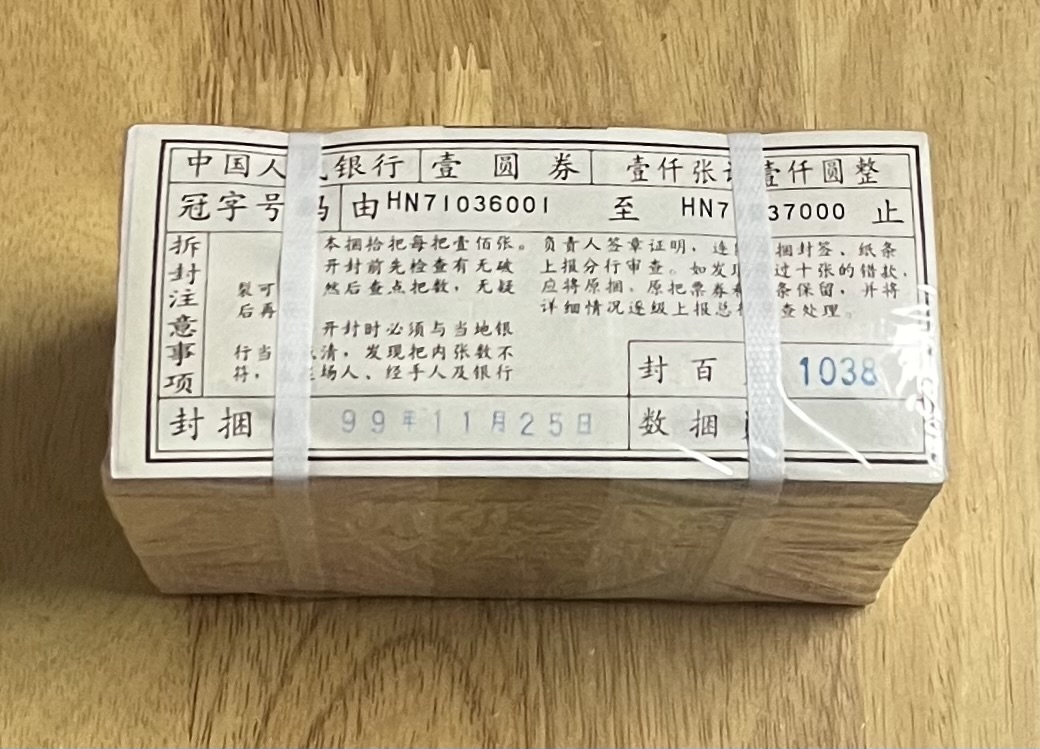 中国人 银行 壹圆券 壹仟张 壹仟圆整
冠字号码 由HN71036001 至 HN7 37000 止
拆封注意事项
本捆拾把每把壹佰张。
开封前先检查有无破
裂可 然后查点把数，无疑
后再
开封时必须与当地银
行当 点清，发现把内张数不
符， 场人、经手人及银行
负责人签章证明，连 捆封签、纸条
上报分行审查。如发现 过十张的错款，
应将原捆、原把票券 条保留，并将
详细情况逐级上报总 查处理。
封百 1038
封捆 99年11月25日
数捆